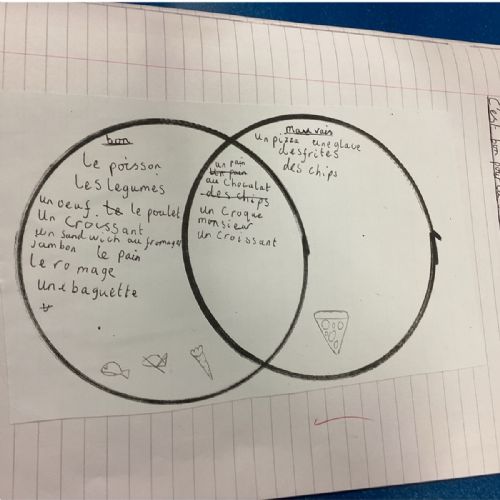 bon
le poisson
les legumes
un oeuf. le le poulet
un croissant
un sandwich au fromage
jambon le pain
le romage
une baguette
un pain
un pain
au chocolat
des chips
un croque
monsieur
un croissant
mauvais
un pizza une glave
des frites
des chips
c'est bon pour